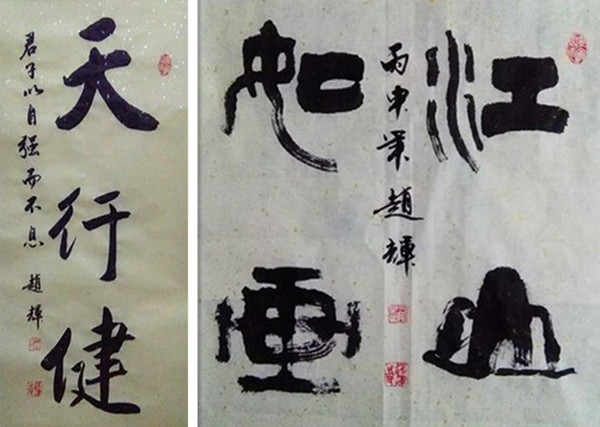 天行健
君子以自强而不息 趙輝
江山
丙申 趙輝
如画